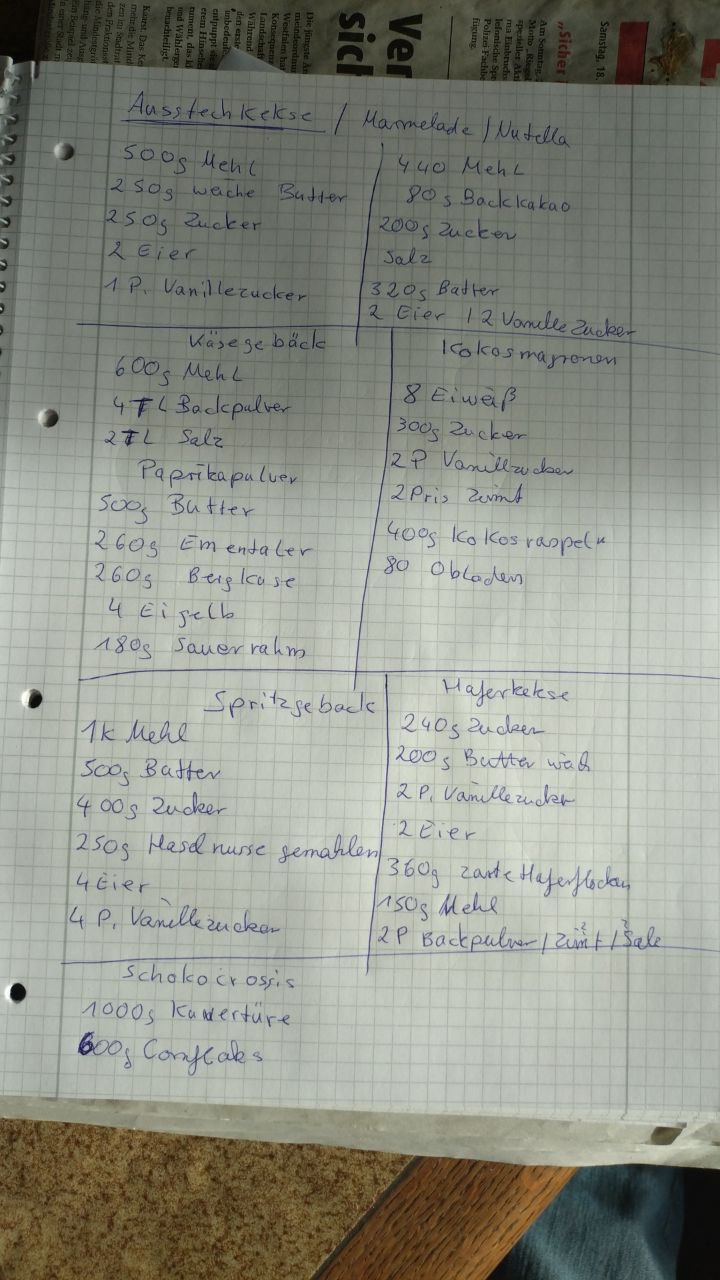 Samstag, 18.
„Sicher
Ver
sich
Ausstechkekse / Marmelade / Nutella
500g Mehl
250g weiche Butter
250g Zucker
2 Eier
1 P. Vanillezucker
440 Mehl
80g Backkakao
200g Zucker
Salz
320g Butter
2 Eier / 2 Vanillezucker
Käsegebäck
600g Mehl
4TL Backpulver
2TL Salz
Paprikapulver
500g Butter
260g Ementaler
260g Bergkäse
4 Eigelb
180g Sauerrahm
Kokosmagronen
8 Eiweiß
300g Zucker
2P Vanillzucker
2 Pris Zimt
400g Kokosraspeln
80 Obladen
Spritzgeback
1K Mehl
500g Butter
400g Zucker
250g Haselnusse gemahlen
4 Eier
4 P. Vanillezucker
Haferkekse
240g Zucker
200g Butter weich
2 P. Vanillezucker
2 Eier
360g zarte Haferflocken
150g Mehl
2P Backpulver / Zimt /
Schokocrossis
1000g Kuvertüre
600g Cornflaks